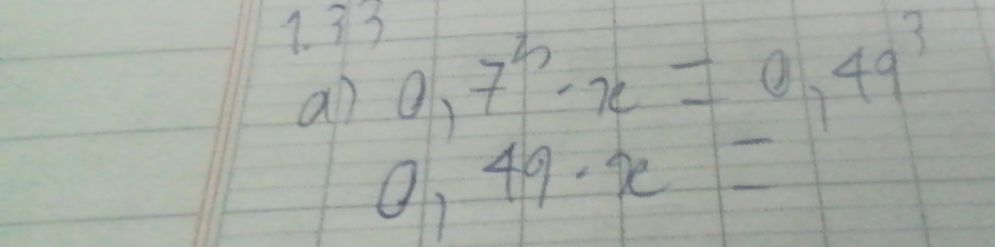 1.33
a) 0,7⁵ · x = 0,49³
0,49 · x =